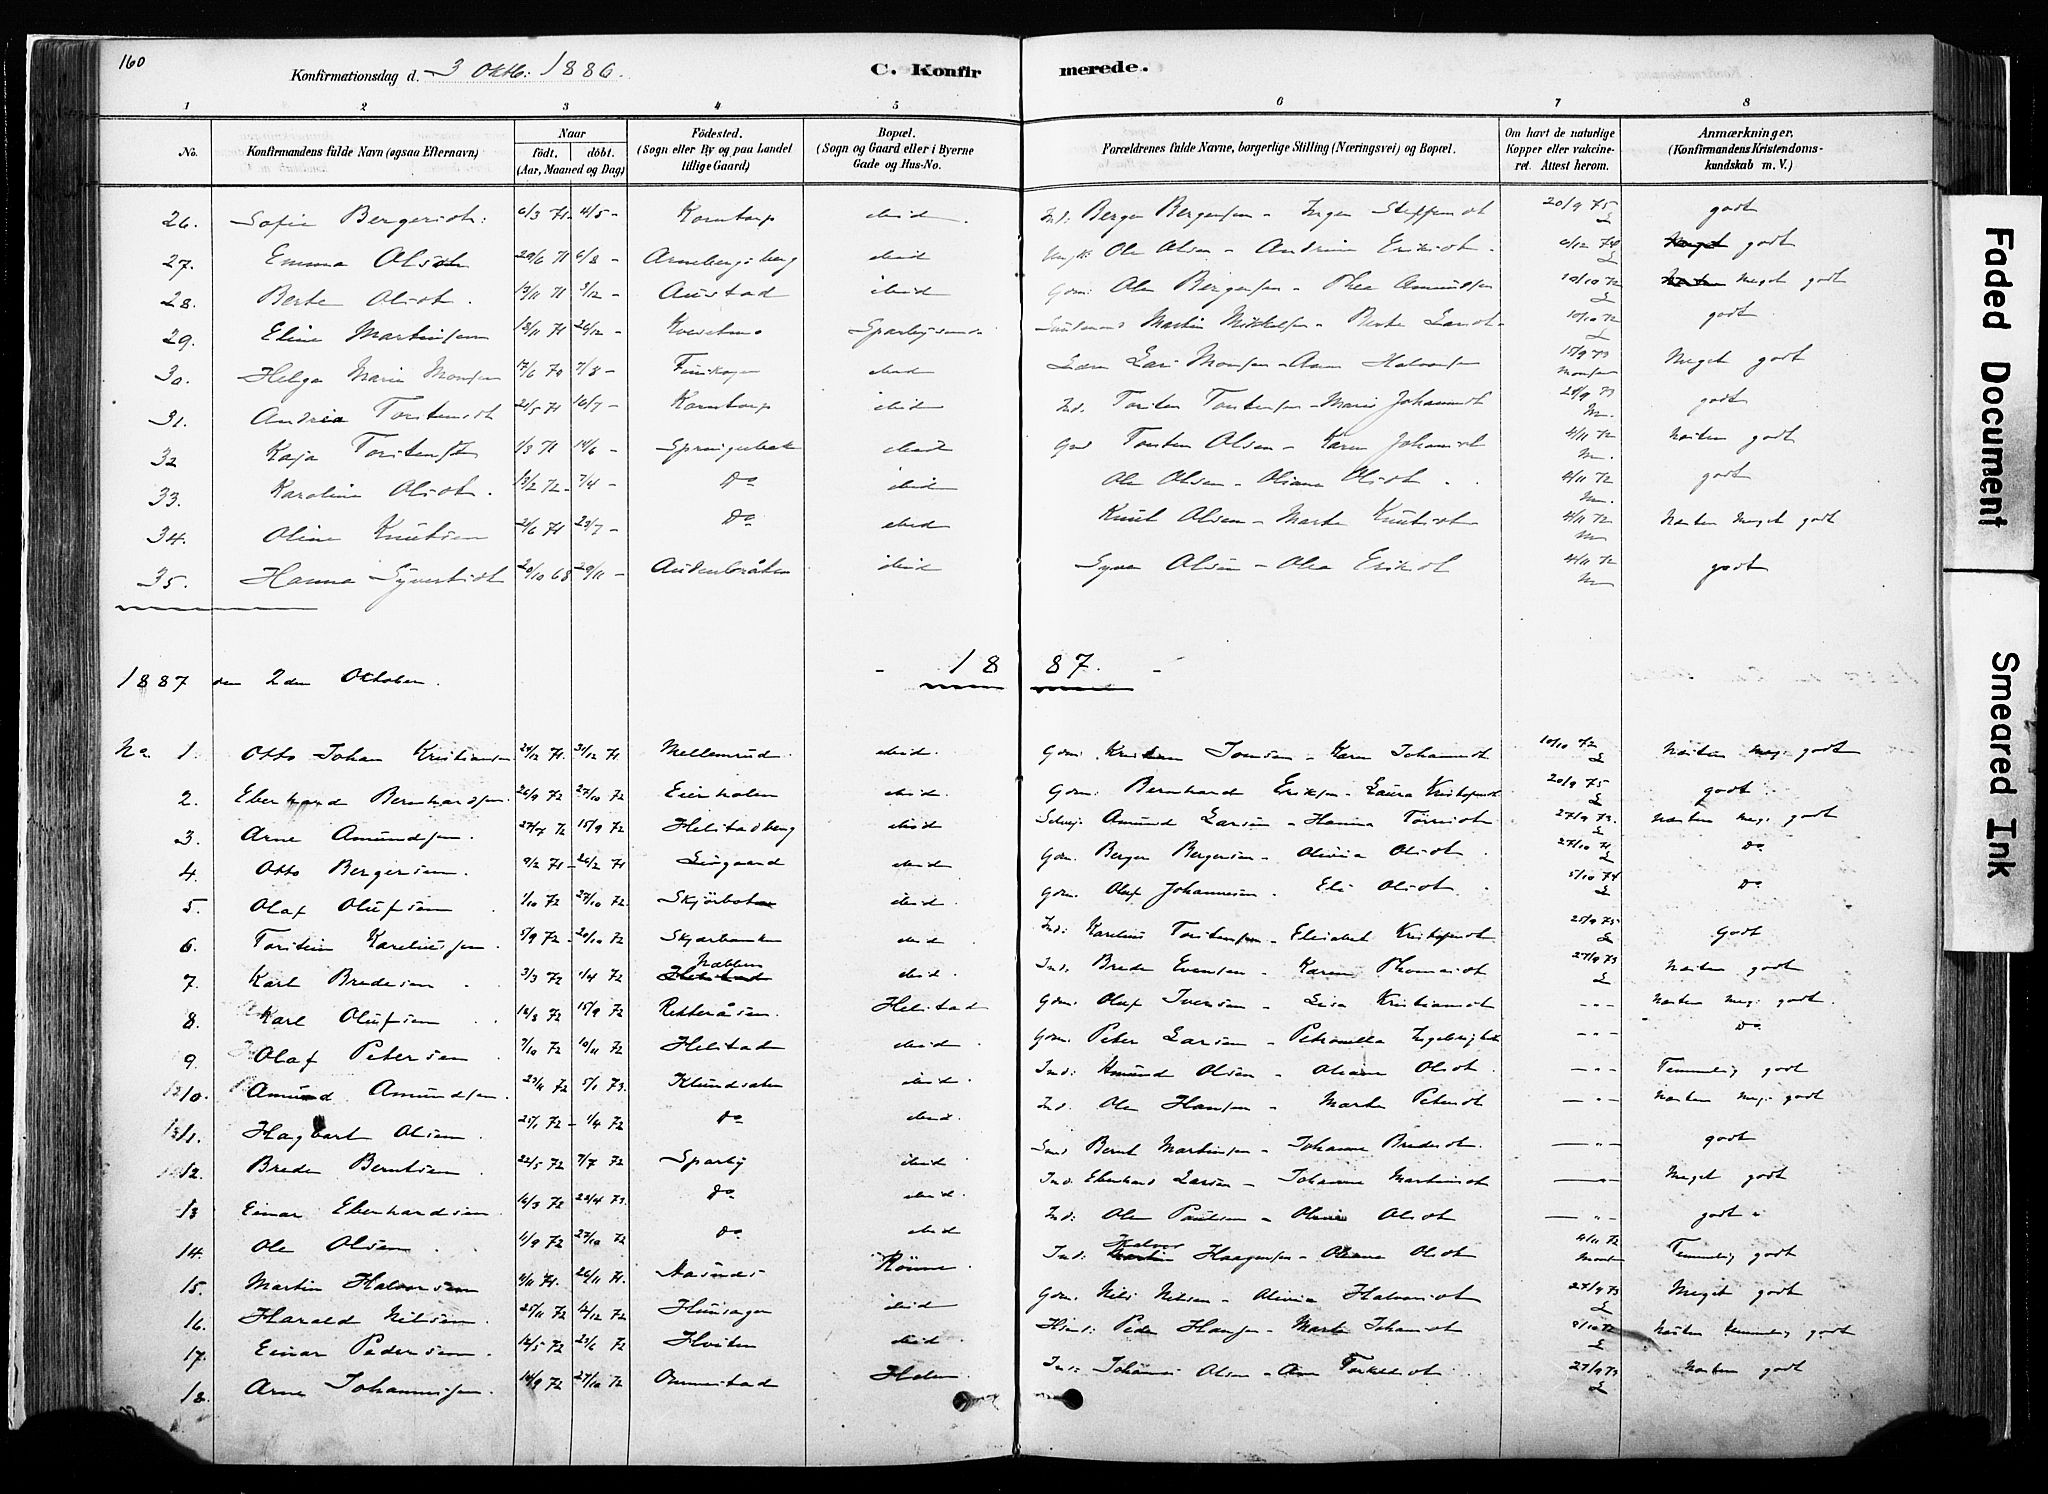 160
Konfirmationsdag d. 3 Oktb: 1886.
C. Konfirmerede.
1 2 3 4 5 6 7 8
No.
Konfirmandens fulde Navn (ogsaa Efternavn)
Naar
født, døbt.
(Aar, Maaned og Dag)
Fødested.
(Sogn eller By og paa Landet
tillige Gaard)
Bopæl.
(Sogn og Gaard eller i Byerne
Gade og Hus-No.
Forældrenes fulde Navne, borgerlige Stilling (Næringsvei) og Bopæl.
Om havt de naturlige
Kopper eller vakcine-
ret. Attest herom.
Anmærkninger.
(Konfirmandens Kristendoms-
kundskab m. V.)
26. Sofie Bergersdt: 6/3 71 4/5 - Korntorp ibid. Ind: Berger Bergersen - Inger Steffensdt 20/9 75 L godt
27. Emma Olsdt 29/6 71 6/8 - Arnebergsberg ibid Ole Olsen - Andrine Eriksdt. 6/12 74 L godt
28. Berte Olsdt. 13/11 71 3/12 - Austad ibid Gdm: Ole Bergersen - Thea Amundsen 10/10 72 L meget godt
29. Eline Martinsen 18/11 71 26/12 - Martin Mikkelsen - Berte Larsdt 10/10 72 L godt
30. Helga Marie Monsen 17/6 70 7/8 - Finskogen ibid Lars Monsen - Halvorsen 15/9 73 Monsen Meget godt
31. Andrea Torstensdt 21/5 71 16/7 - Korntorp ibid Ind. Torsten Torstensen - Marie Johannesdt 24/9 73 M. godt
32 Kaja Torstensdt 1/3 71 14/6 - ibid Torsten Olsen - Karen Johansdt 4/11 72 M. næsten godt
33. Karoline Olsdt. 13/2 72 7/4 - Do ibid Ole Olsen - Oliana Olsdt. 4/11 72 M. godt
34. Oline Knutsen 21/6 71 23/7 - Do ibid Knut Olsen - Marte Knutsdt 4/11 72 M Næsten meget godt
35. Hanna Syversdt 20/10 68 29/11 - Audenbråten ibid Syver Olsen - Olea Eriksdt 4/11 72 M godt
1887 den 2den Oktober. - 1887. -
No 1. Otto Johan Kristiansen 24/12 71. 31/12 71. Mellemrud. ibid. Gdm: Kristian Iversen - Karen Johannesdt 10/10 72 L næsten meg. godt
2. Eberhard Bernhardsen. 26/9 72 27/10 72 Eierholen ibid. Gdm: Bernhard Eriksen - Laura Kristofersdt 20/9 75 L godt.
3. Arne Amundsen. 27/7 72 15/9 72 Helstadberg ibid Amund Larsen - Hanna Torresdt 27/9 73. L næsten meg. godt
4. Otto Bergersen. 9/2 71 - 26/2 71 Lingaard ibid Gdm. Berger Bergersen - Olivia Olsdt. 27/10 71 L Do
5. Olaf Olufsen 1/10 72 27/10 72. ibid. Gdm. Oluf Johannesen. Eli Olsdt. 5/10 74 L Do
6. Torstein Kareliussen. 5/9 72 - 20/10 72 Skjærbanken ibid Ind: Karelius Torstensen - Elisabet Kristofersdt 25/9 75 L Godt
7. Karl Bredesen 3/3 72 1/4 72 Næbben ibid. Ind. Brede Evensen - Karen Thomasdt 27/9 73 L næsten godt
8. Karl Olufsen 12/8 72 15/9 72 Retteråsen Helstad Gdm: Oluf Iversen - Lisa Kristiansdt - " - næsten meg. godt.
9 Olaf Petersen 7/10 72 10/11 72 Helstad ibid. Gdm. Peter Larsen - Petronella - " - Do
10. Amund Amundsen. 23/11 72 5/1 73. ibid. Ind: Amund Olsen - Oleane Olsdt. - " - Temmelig godt
11. Hagbart Olsen. 25/1 72 - 1/4 72 Do ibid. Ind. Ole Hansen - Marte Petersdt - " - næsten meg. godt
12. Brede Berntsen 22/5 72 7/7 72 Sparby ibid Ind Bernt Martinsen - Johanne Bredesdt. - " - godt
13 Einar Eberhardsen. 16/3 72 22/4 73. Do ibid. Ind. Eberhard Larsen - Johanne Martinsdt - " - Meget godt
14. Ole Olsen 1/9 72 27/10 72 Do ibid Ind: Ole Paulsen - Olivia Olsdt - " - godt
15. Martin Halvorsen 9/11 71. 26/11 71. Aasnes Rönne. Ind: Halvor Haagensen - Oleana Olsdt 4/11 72 Temmelig godt
16. Harald Nilsen. 25/11 72 12/12 72 ibid Gdm. Nils Nilsen - Olivia Halvorsdt 27/9 73 L Meget godt
17. Einar Pedersen. 14/5 72 23/6 72 Hviten ibid. Peder Hansen - Marte Johansdt 9/10 72 L Næsten temmelig godt
18. Arne Johannessen. 14/9 72 27/10 72 Ommestad Holen. Ind: Johannes Olsen - Torkelsdt 27/9 73 L Næsten godt
Faded Document
Smeared Ink